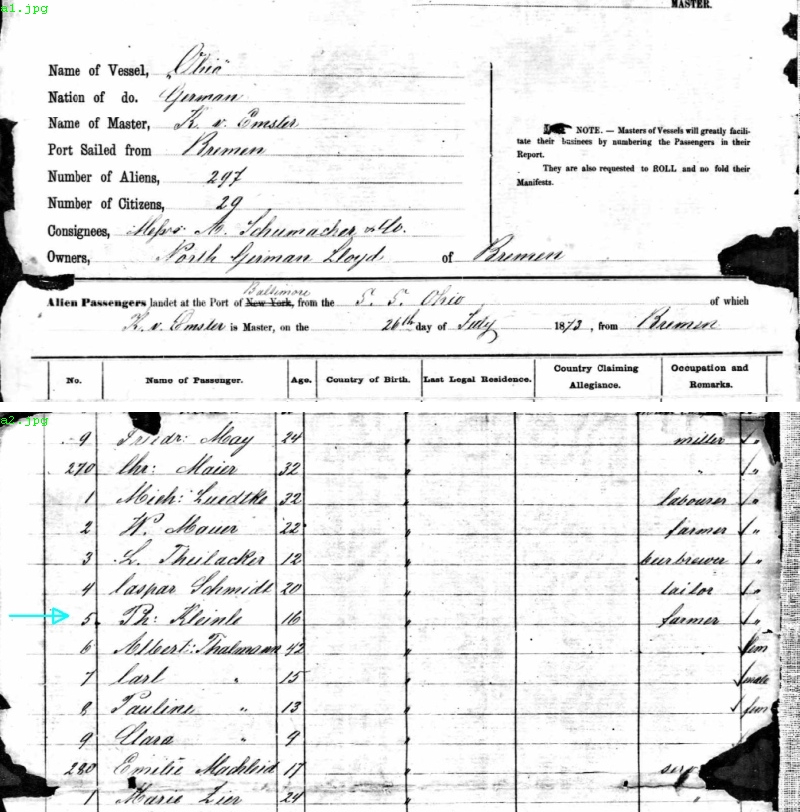 a1.jpg
MASTER.
Name of Vessel, "Ohio"
Nation of do. German
Name of Master, K. v. Emster
Port Sailed from Bremen
Number of Aliens, 297
Number of Citizens, 29
Consignees, Messrs A. Schumacher & Co.
Owners, North German Lloyd of Bremen
NOTE. — Masters of Vessels will greatly facili-
tate their businees by numbering the Passengers in their
Report.
They are also requested to ROLL and no fold their
Manifests.
Baltimore
Alien Passengers landet at the Port of New York, from the S. S. Ohio of which
K. v. Emster is Master, on the 26th day of July 1873, from Bremen
No. Name of Passenger. Age. Country of Birth. Last Legal Residence. Country Claiming Allegiance. Occupation and Remarks.
a2.jpg
9 Friedr: May 24 " miller "
270 Chr: Maier 32 " " "
1 Mich: Luedtke 32 " labourer "
2 W. Mauer 22 " farmer "
3 L. Theilacker 12 " beerbrewer "
4 Caspar Schmidt 20 " tailor "
5. Th: Kleinle 16 " farmer "
6 Albert: Thalmann 42 " fem
7 Carl " 15 " male
8 Pauline " 13 " fem
9 Clara " 9 "
280 Emilie Machleid 17 " serv
1 Marie Zier 24 "